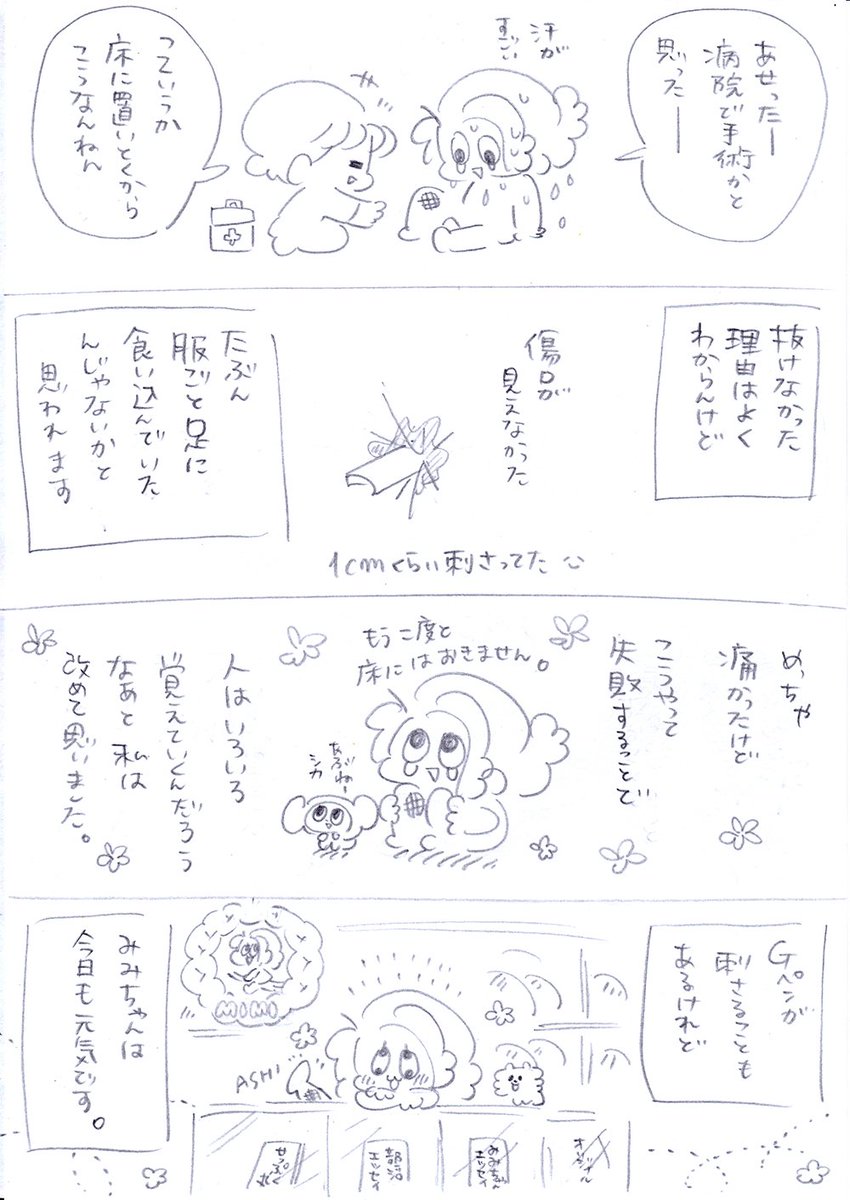 あせったー
病院で手術かと
思ったー
汗が
すっごい
っていうか
床に置いとくから
こうなんねん
抜けなかった
理由はよく
わからんけど
傷口が
見えなかった
たぶん
服ごと足に
食い込んでいた
んじゃないかと
思われます
1cmくらい刺さってた
めっちゃ
痛かったけど
こうやって
失敗することで
もう二度と
床にはおきません。
あぶねー
シカ
人はいろいろ
覚えていくんだろう
なあと私は
改めて思いました。
Gペンが
刺さることも
あるけれど
MIMI
ASHI
みみちゃんは
今日も元気です。